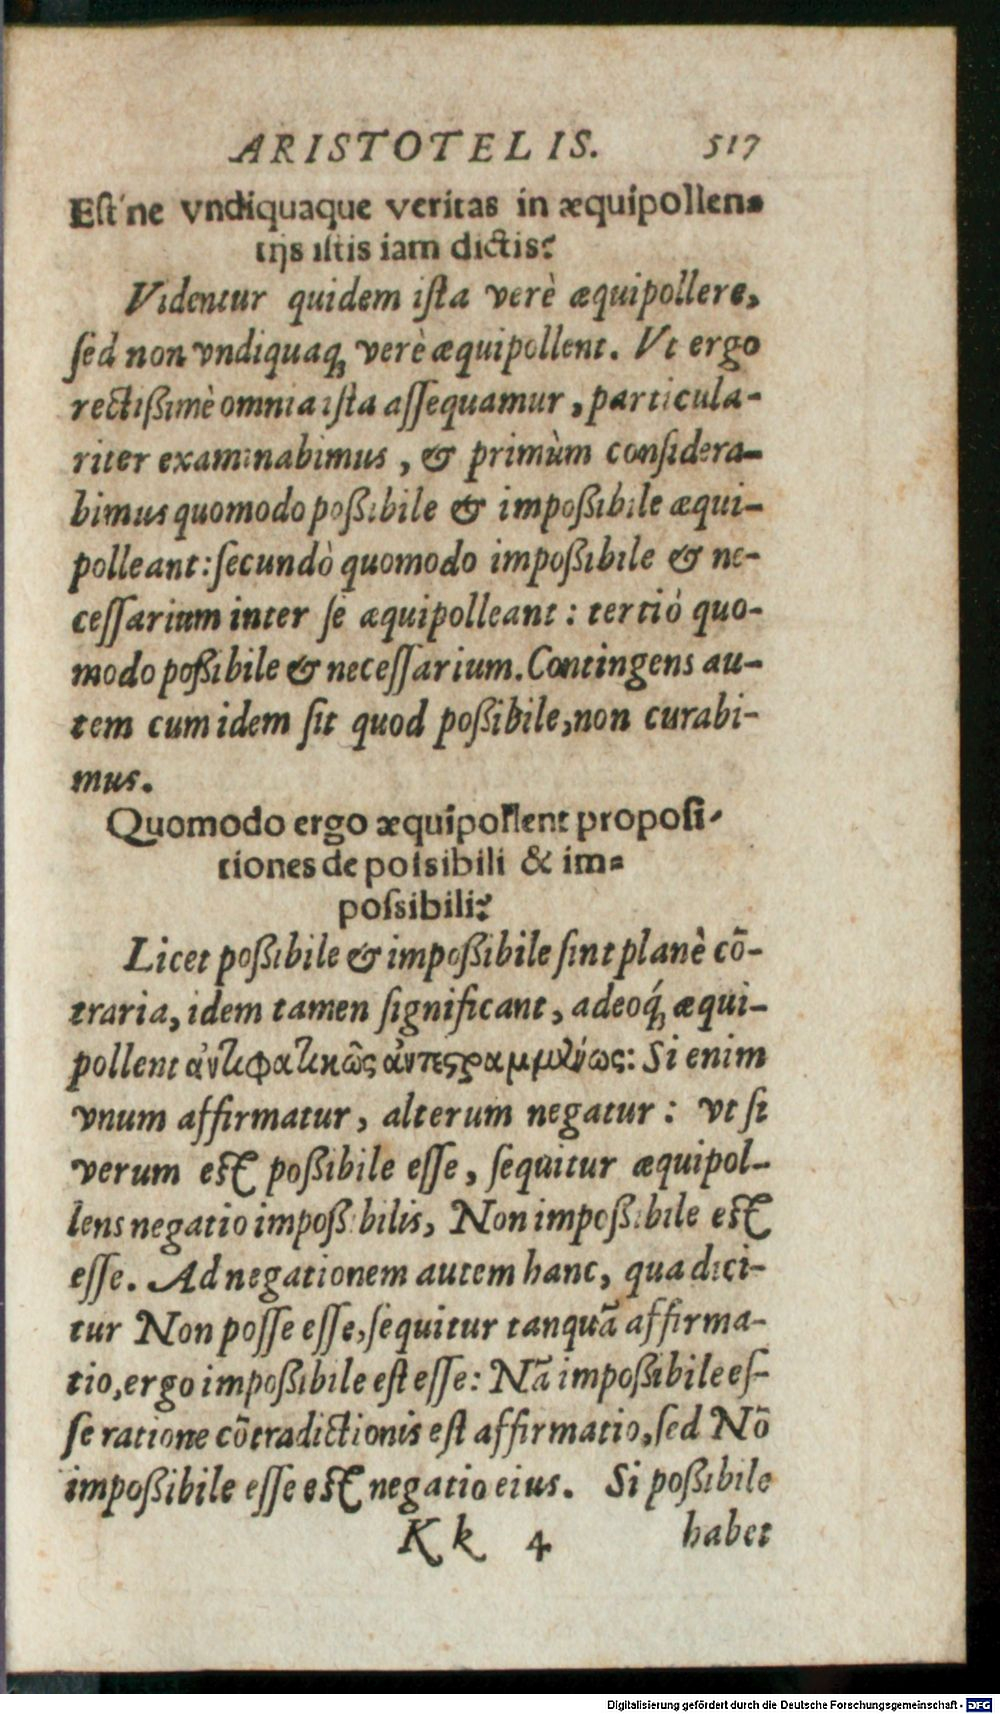 ARISTOTELIS. 517
Est'ne vndiquaque veritas in æquipollen-
tijs istis iam dictis?
Videntur quidem ista verè æquipollere,
sed non vndiquaq; verè æquipollent. Vt ergo
rectißimè omnia ista assequamur, particula-
riter examinabimus, & primùm considera-
bimus quomodo poßibile & impoßibile æqui-
polleant: secundò quomodo impoßibile & ne-
cessarium inter se æquipolleant: tertiò quo-
modo poßibile & necessarium. Contingens au-
tem cum idem sit quod poßibile, non curabi-
mus.
Quomodo ergo æquipollent proposi-
tiones de possibili & im-
possibili?
Licet poßibile & impoßibile sint planè cõ-
traria, idem tamen significant, adeoq́; æqui-
pollent ἀντιφατικῶς ἀντεςραμμένως: Si enim
vnum affirmatur, alterum negatur: vt si
verum est poßibile esse, sequitur æquipol-
lens negatio impoßibilis, Non impoßibile est
esse. Ad negationem autem hanc, qua dici-
tur Non posse esse, sequitur tanquã affirma-
tio, ergo impoßibile est esse: Nã impoßibile es-
se ratione cõtradictionis est affirmatio, sed Nõ
impoßibile esse est negatio eius. Si poßibile
Kk 4 habet
Digitalisierung gefördert durch die Deutsche Forschungsgemeinschaft - DFG